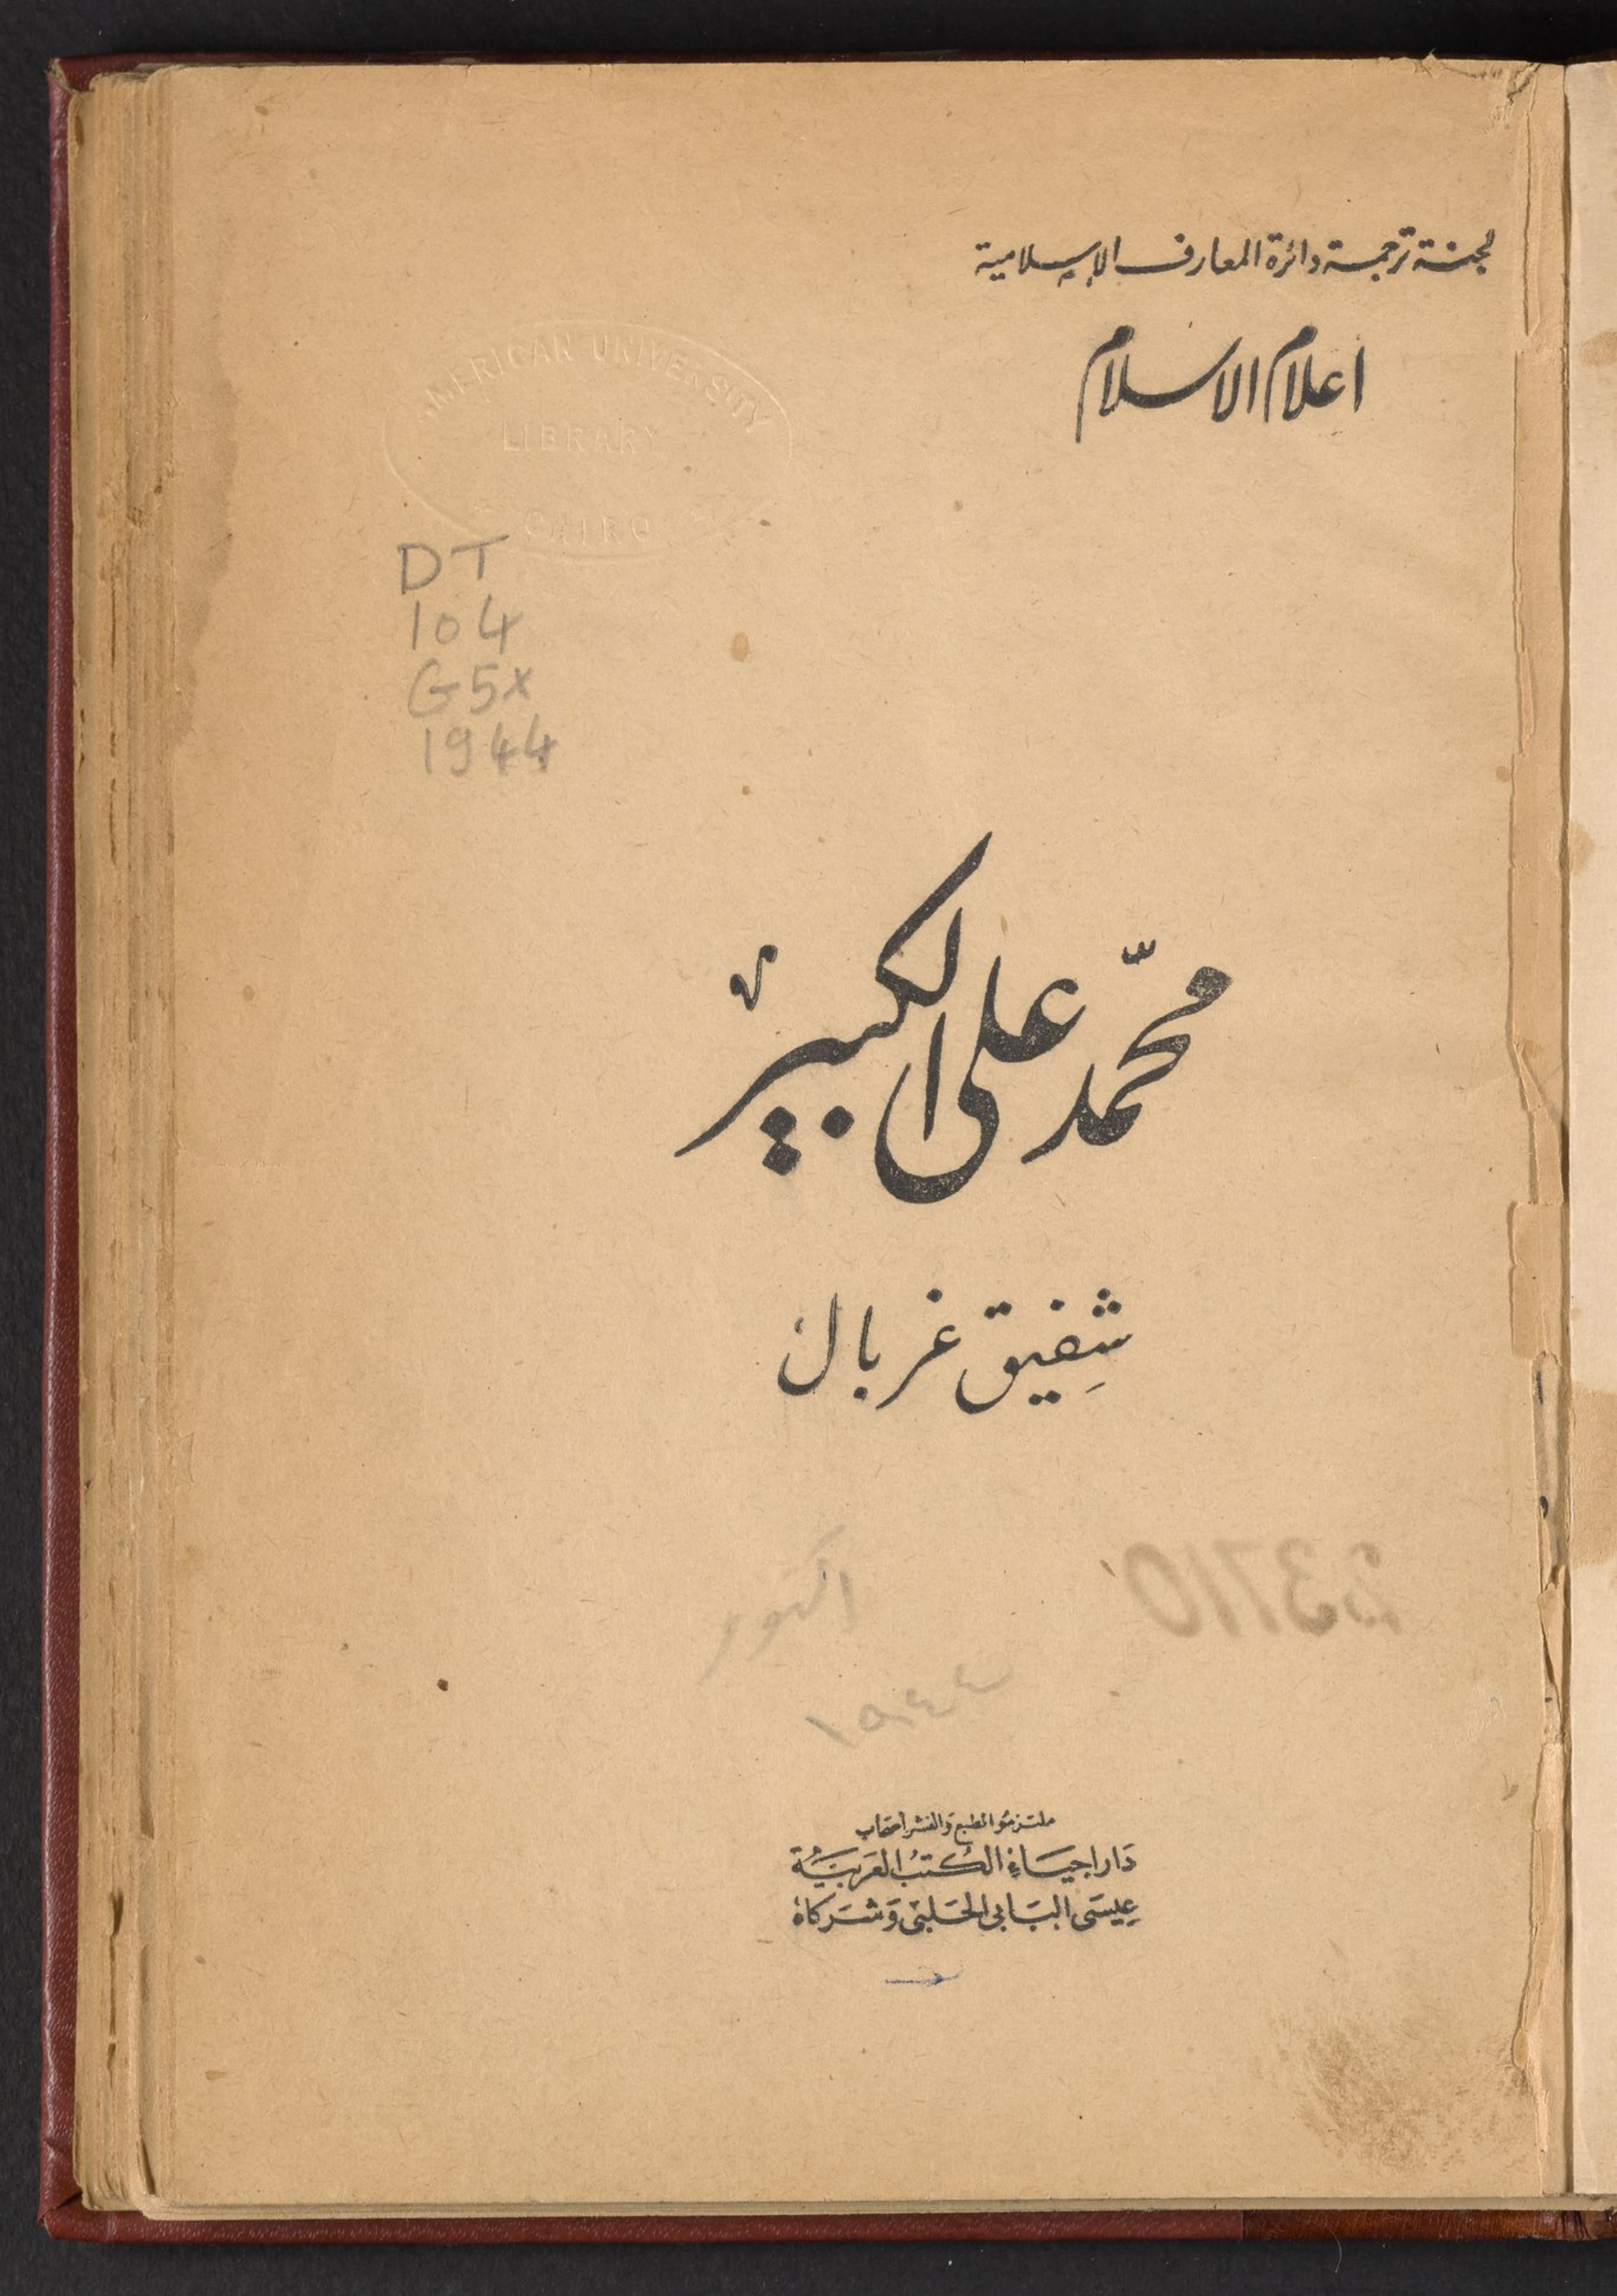 لجنة ترجمة دائرة المعارف الإسلامية
اعلام الاسلام
AMERICAN UNIVERSITY
LIBRARY
CAIRO
DT
104
G5x
1944
محمّد على الكبير
شفِيق غربال
اكتوبر
١٩٤٤
23710
ملتزمو الطبع والنشر أصحاب
دَار احيَاء الكُتبُ العَربيَّة
عِيسَى البَابى الحَلبى وَشرَكاهُ